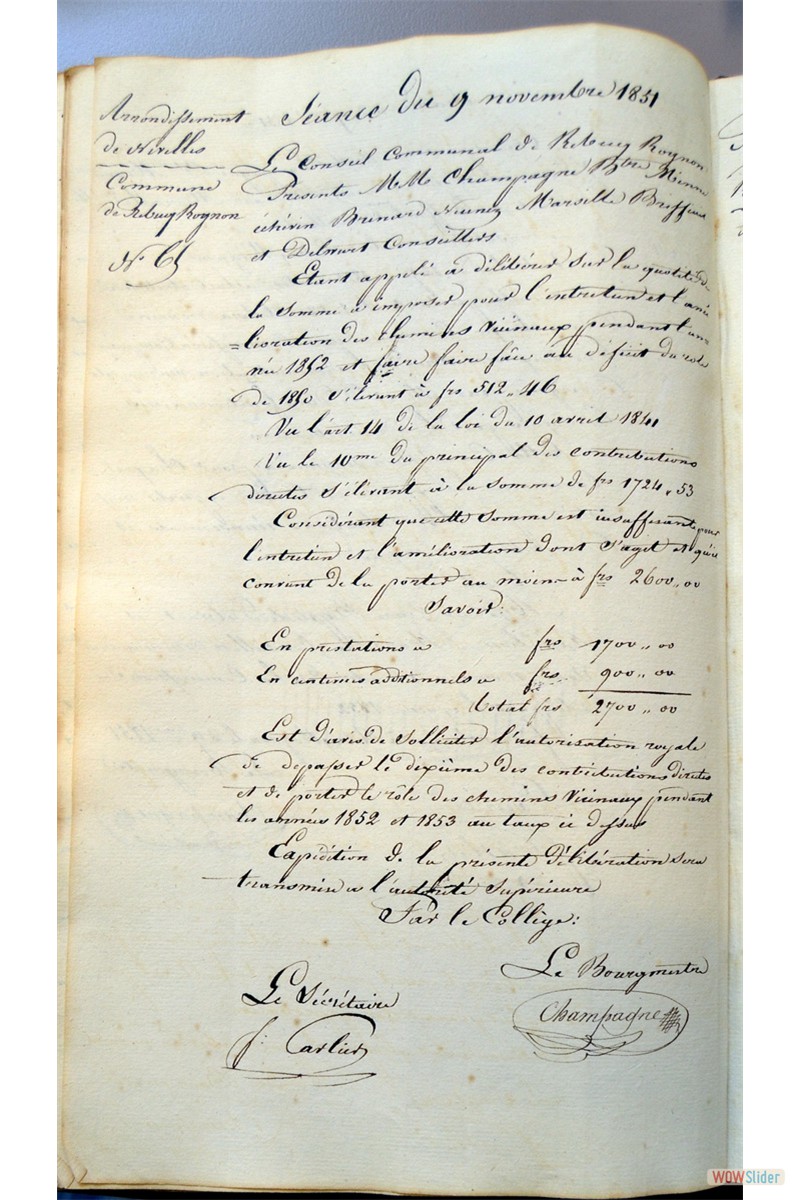 Séance du 9 novembre 1851
Arrondissement
de Nivelles
Commune
de Rebecq Rognon
N° 61
Le Conseil Communal de Rebecq Rognon
Présents M.M. Champagne Bgtre Minne
échevin Brenard Marselle
et Delwart Conseillers.
Etant appelé à délibérer sur la quotité de
la somme à imposer pour l'entretien et l'amé
=lioration des chemins Vicinaux pendant l'an
née 1852 et faire faire face au déficit du role
de 1850 s'élevant à frs 512,,46
Vu l'art. 14 de la loi du 10 avril 1841
Vu le 10me du principal des contributions
directes s'élevant à la somme de frs 1724,,53
Considérant que cette somme est insuffisante pour
l'entretien et l'amélioration dont s'aget et qu'il
convient de la porter au moins à frs 2600,,00
Savoir:
En prestations à frs 1700,,00
En centimes additionnels à frs 900,,00
total frs 2700,,00
Est d'avis de solliciter l'autorisation royale
de depasser le dixième des contributions directes
et de porter le rôle des chemins Vicinaux pendant
les années 1852 et 1853 au taux ci dessus
Expédition de la présente délibération sera
transmise a l'autorité supérieure
Par le Collège:
Le Bourgmestre
Champagne
Le Sécrétaire
f. Carlier
WOWSlider